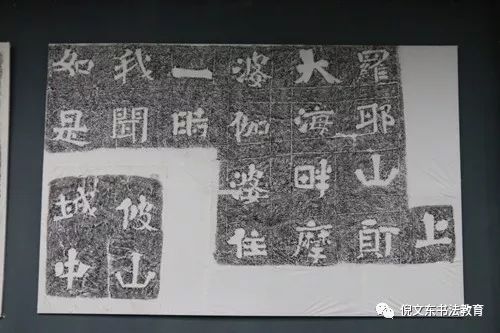 如是
我聞
一時
婆伽婆住
大海畔摩
羅耶山頂
上
城中
山
倪文东书法教育